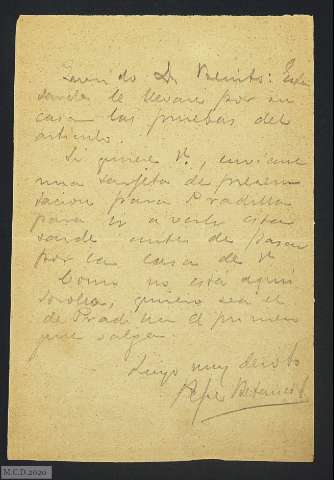 Querido Dn Benito: Esta
tarde le llevaré por su
casa las pruebas del
artículo.
Si quiere V., envíeme
una tarjeta de presen
tación para Pradilla
para ir a verle esta
tarde antes de pasar
por la casa de V.
Como no está aquí
Sorolla, quiero sea el
de Pradilla el primero
que salga.
Suyo muy devoto
M.C.D. 2020